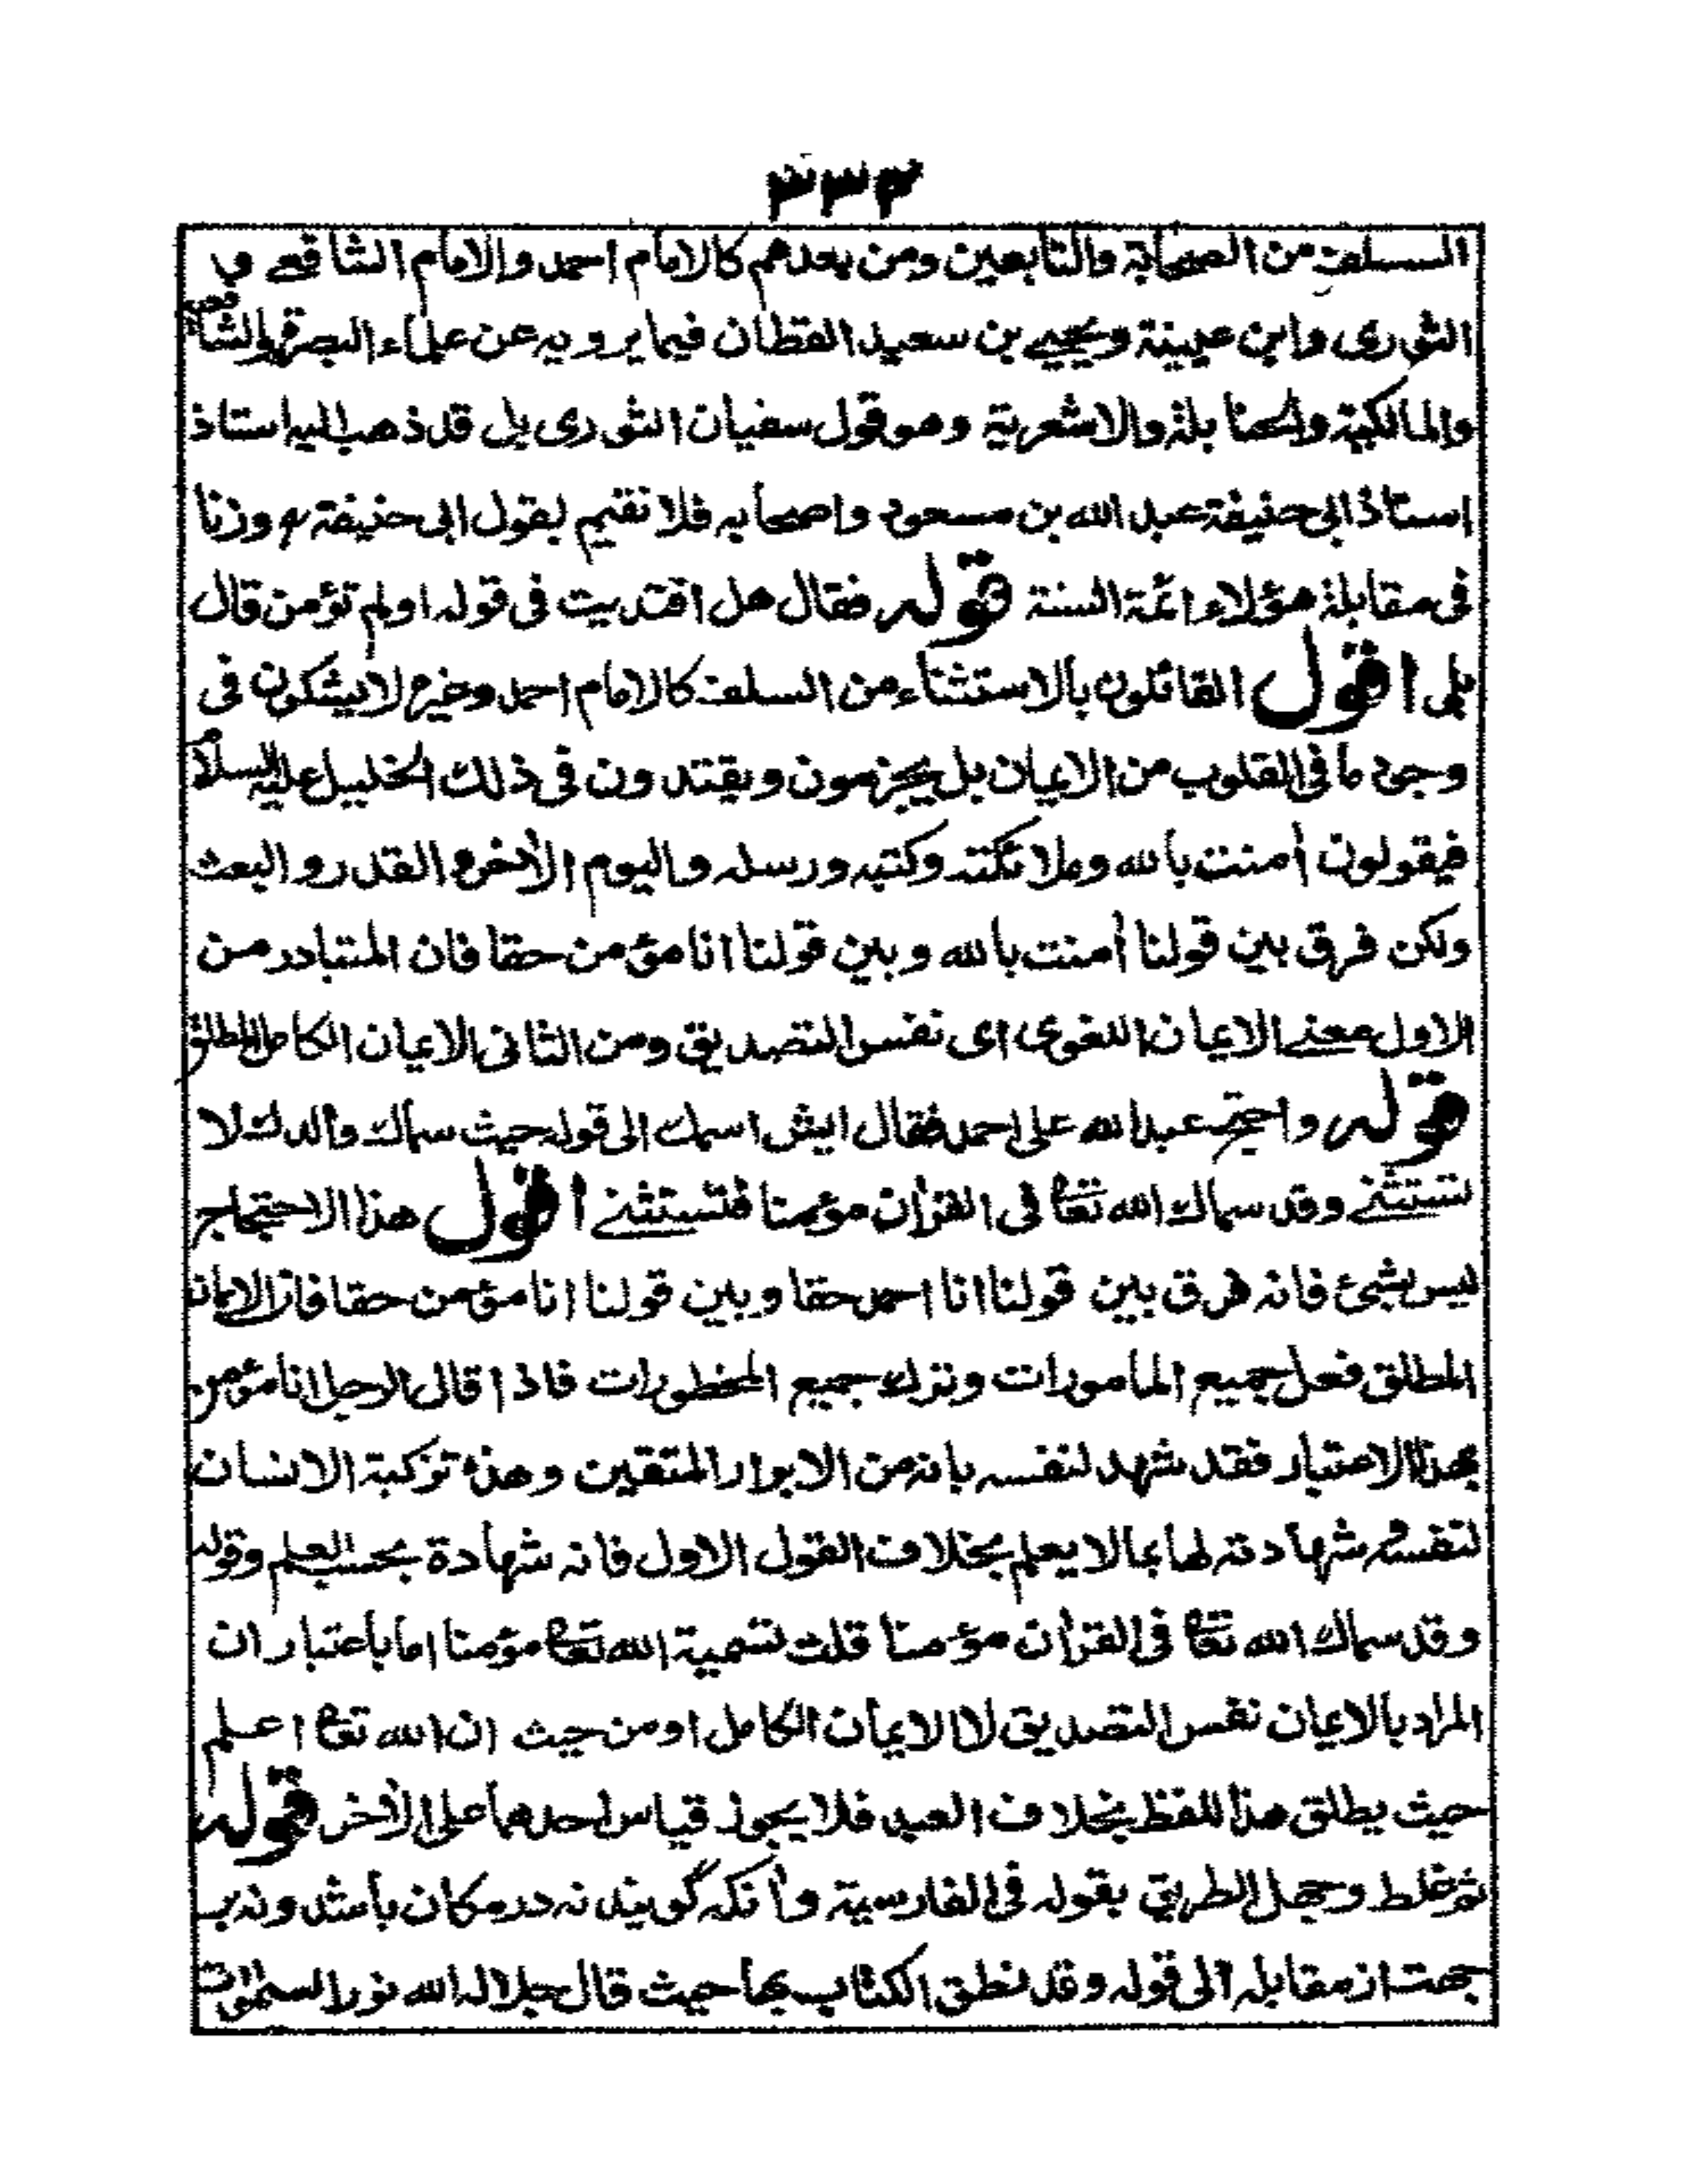 ٢٣٣
السلف من الصحابة والتابعين ومن بعدهم كالامام احمد والامام الشافعي و
الثوري وابن عيينة ويحيى بن سعيد القطان فيما يرويه عن علماء البصرة والشافعية
والمالكية والحنابلة والاشعرية وهو قول سفيان الثوري بل قد ذهب اليه استاذ
استاذ ابي حنيفة عبد الله بن مسعود واصحابه فلا نقيم لقول ابي حنيفة رح وزنا
في مقابلة هؤلاء ائمة السنة قوله فقال هل اقتديت في قوله اولم تؤمن قال
بلى اقول القائلون بالاستثناء من السلف كالامام احمد وغيره لا يشكون في
وجود ما في القلوب من الايمان بل يجزمون ويقتدون في ذلك الخليل عليه السلام
فيقولون أمنت بالله وملائكته وكتبه ورسله واليوم الأخر والقدر والبعث
ولكن فرق بين قولنا أمنت بالله وبين قولنا انا مؤمن حقا فان المتبادر من
الاول معنى الايمان اللغوي اى نفس التصديق ومن الثاني الايمان الكامل المطلق
قوله واحتج عبد الله على احمد فقال ايش اسمك الى قوله حيث سماك والدك لا
تستثنى وقد سماك الله تعا في القرأن مؤمنا فتستثنى اقول هذا الاحتجاج
ليس بشئ فانه فرق بين قولنا انا احمد حقا وبين قولنا انا مؤمن حقا فان الايمان
المطلق فعل جميع المأمورات وترك جميع المحظورات فاذا قال الرجل انا مؤمن
بهذا الاعتبار فقد شهد لنفسه بانه من الابرار المتقين وهذه تزكية الانسان
لنفسه وشهادته لها بما لا يعلم بخلاف القول الاول فانه شهادة بحسب العلم وقوله
وقد سماك الله تعا في القرأن مؤمنا قلت تسمية الله تعا مؤمنا اما باعتبار ان
المراد بالايمان نفس التصديق لا الايمان الكامل او من حيث ان الله تعا اعلم
حيث يطلق هذا اللفظ بخلاف العبد فلا يجوز قياس احدهما على الأخر قوله
ثم غلط وجهل الطريق بقوله في الفارسية وأنكه گويند نه در مكان باشد ونه بر
جهت از مقابله الى قوله وقد نطق الكتاب بها حيث قال جلاله الله نور السموات